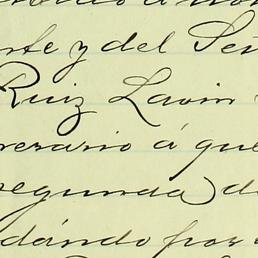 rte y del Señ
Ruiz Lavin
rerario á que
segunda) d
dándo por